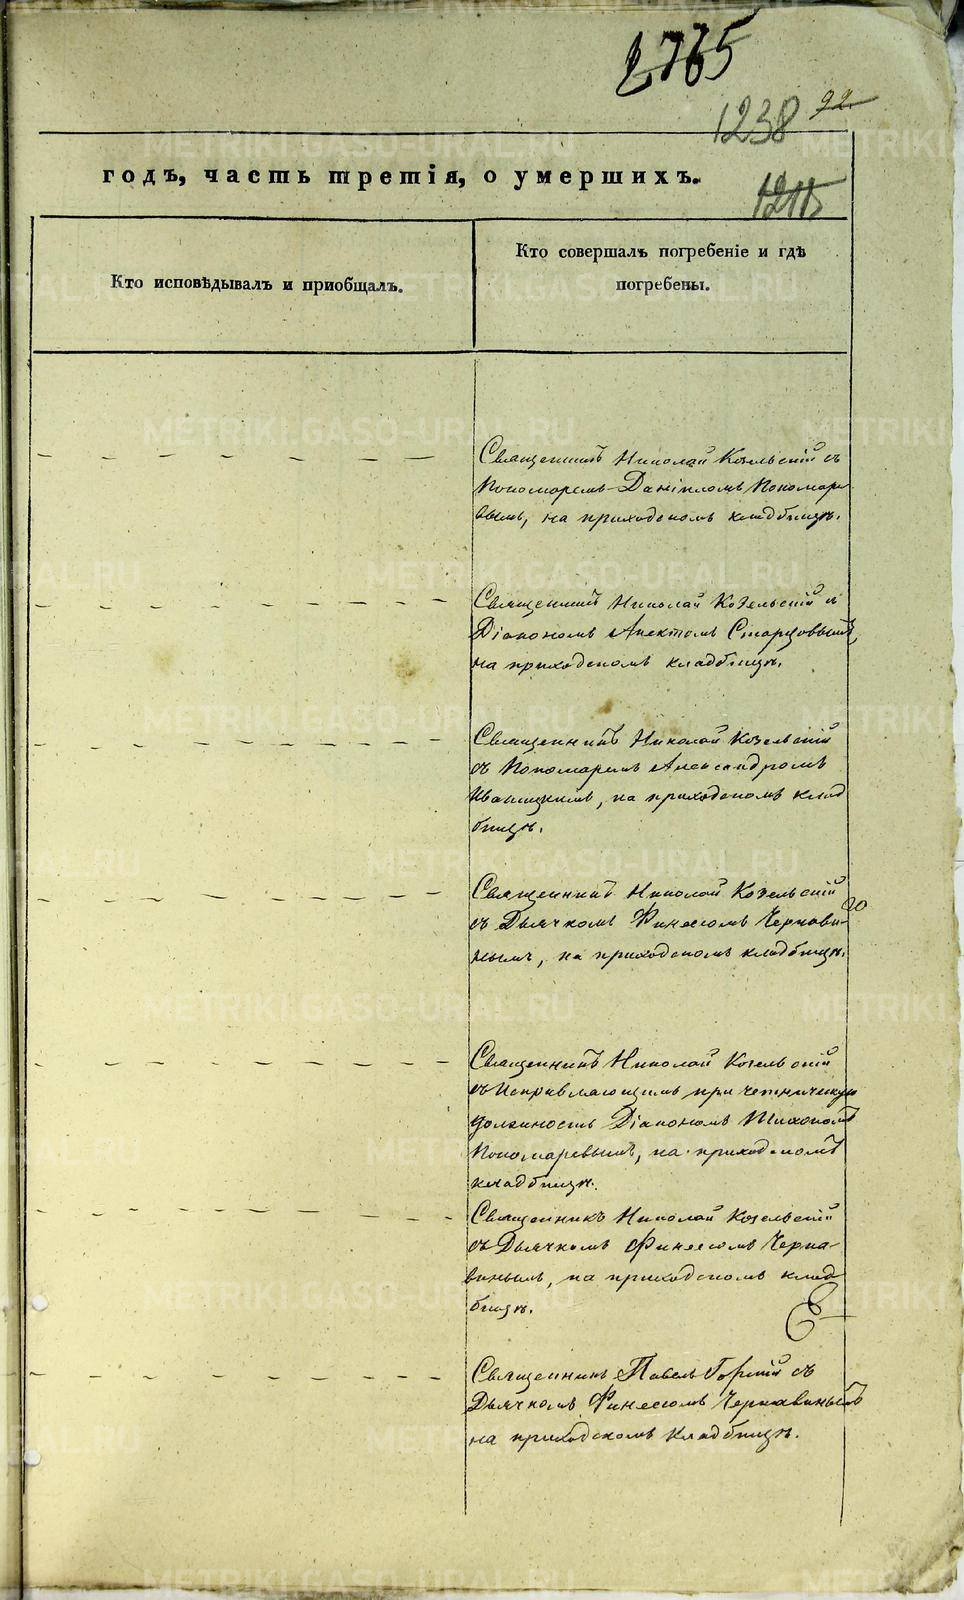 2765
1238 92.
годъ, часть третія, о умершихъ.
1215
Кто исповѣдывалъ и приобщалъ.
Кто совершалъ погребеніе и гдѣ
погребены.
Священникъ Николай Козельскій съ
Пономаремъ Даніиломъ Пономаре
вымъ, на приходскомъ кладбищѣ.
Священникъ Николай Козельскій съ
Діакономъ Старцовымъ,
на приходскомъ кладбищѣ.
Священникъ Николай Козельскій
съ Пономаремъ Александромъ
Иваницкимъ, на приходскомъ клад
бищѣ.
Священникъ Николай Козельскій
съ Дьячкомъ Финеесомъ Чернави-
нымъ, на приходскомъ кладбищѣ.
Священникъ Николай Козельскій
съ Исправляющимъ причетническую
должность Діакономъ Тихономъ
Пономаревымъ, на приходскомъ
кладбищѣ.
Священникъ Николай Козельскій
съ Дьячкомъ Финеесомъ Черна-
винымъ, на приходскомъ клад
бищѣ.
Священникъ Павелъ Горный съ
Дьячкомъ Финеесомъ Чернавинымъ
на приходскомъ кладбищѣ.
METRIKI.GASO-URAL.RU